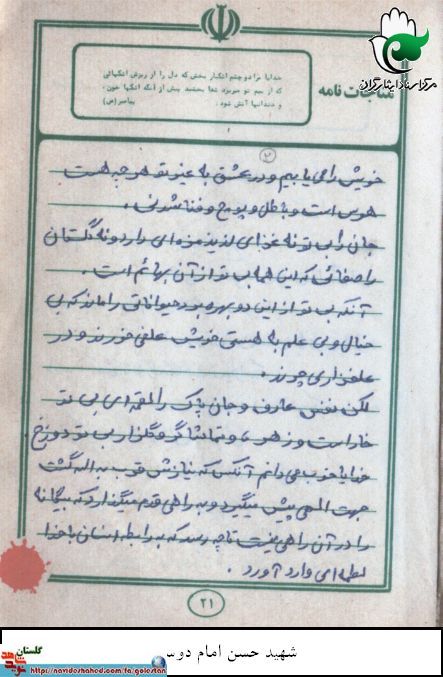 مرکز اسناد ایثارگران
مناجات نامه
خدایا مرا دو چشم اشکبار بخش که دل را از ریزش اشکهائی
که از بیم تو میریزد شفا بخشند پیش از آنکه اشکها خون،
و دندانها آتش شود. پیامبر(ص)
۲
خویش را می یابیم و در عشق به غیر تو هر چه هست
هوس است و باطل و پوچ و فنا شدنی.
جان را بی تو نه غذای لذیذ مزه ای دارد و نه گلستان
را صفائی که این همه بی تو از آن بهائم است.
آنکه بی تو از این دو بهره برد حیواناتی را ماند که بی
خیال و بی علم به هستی خویش علفی خورند و در
علفزاری چرند.
لکن نفس عارف و جان پاک را لقمه ای بی تو
خار است و زهر، و تماشاگر گلزار بی تو دوزخ.
خدایا خوب می دانم آنکس که نیازش قرب به الله گشت
جهت الهی پیش میگیرد و به راهی قدم میگذارد که بیگانه
را در آن راهی نیست تا چه رسد که به رابطه انسان با خدا
لطمه ای وارد آورد.
۲۱
شهید حسن امام دوس
گلستان
نوید شاهد
https://navideshahed.com/fa/golestan